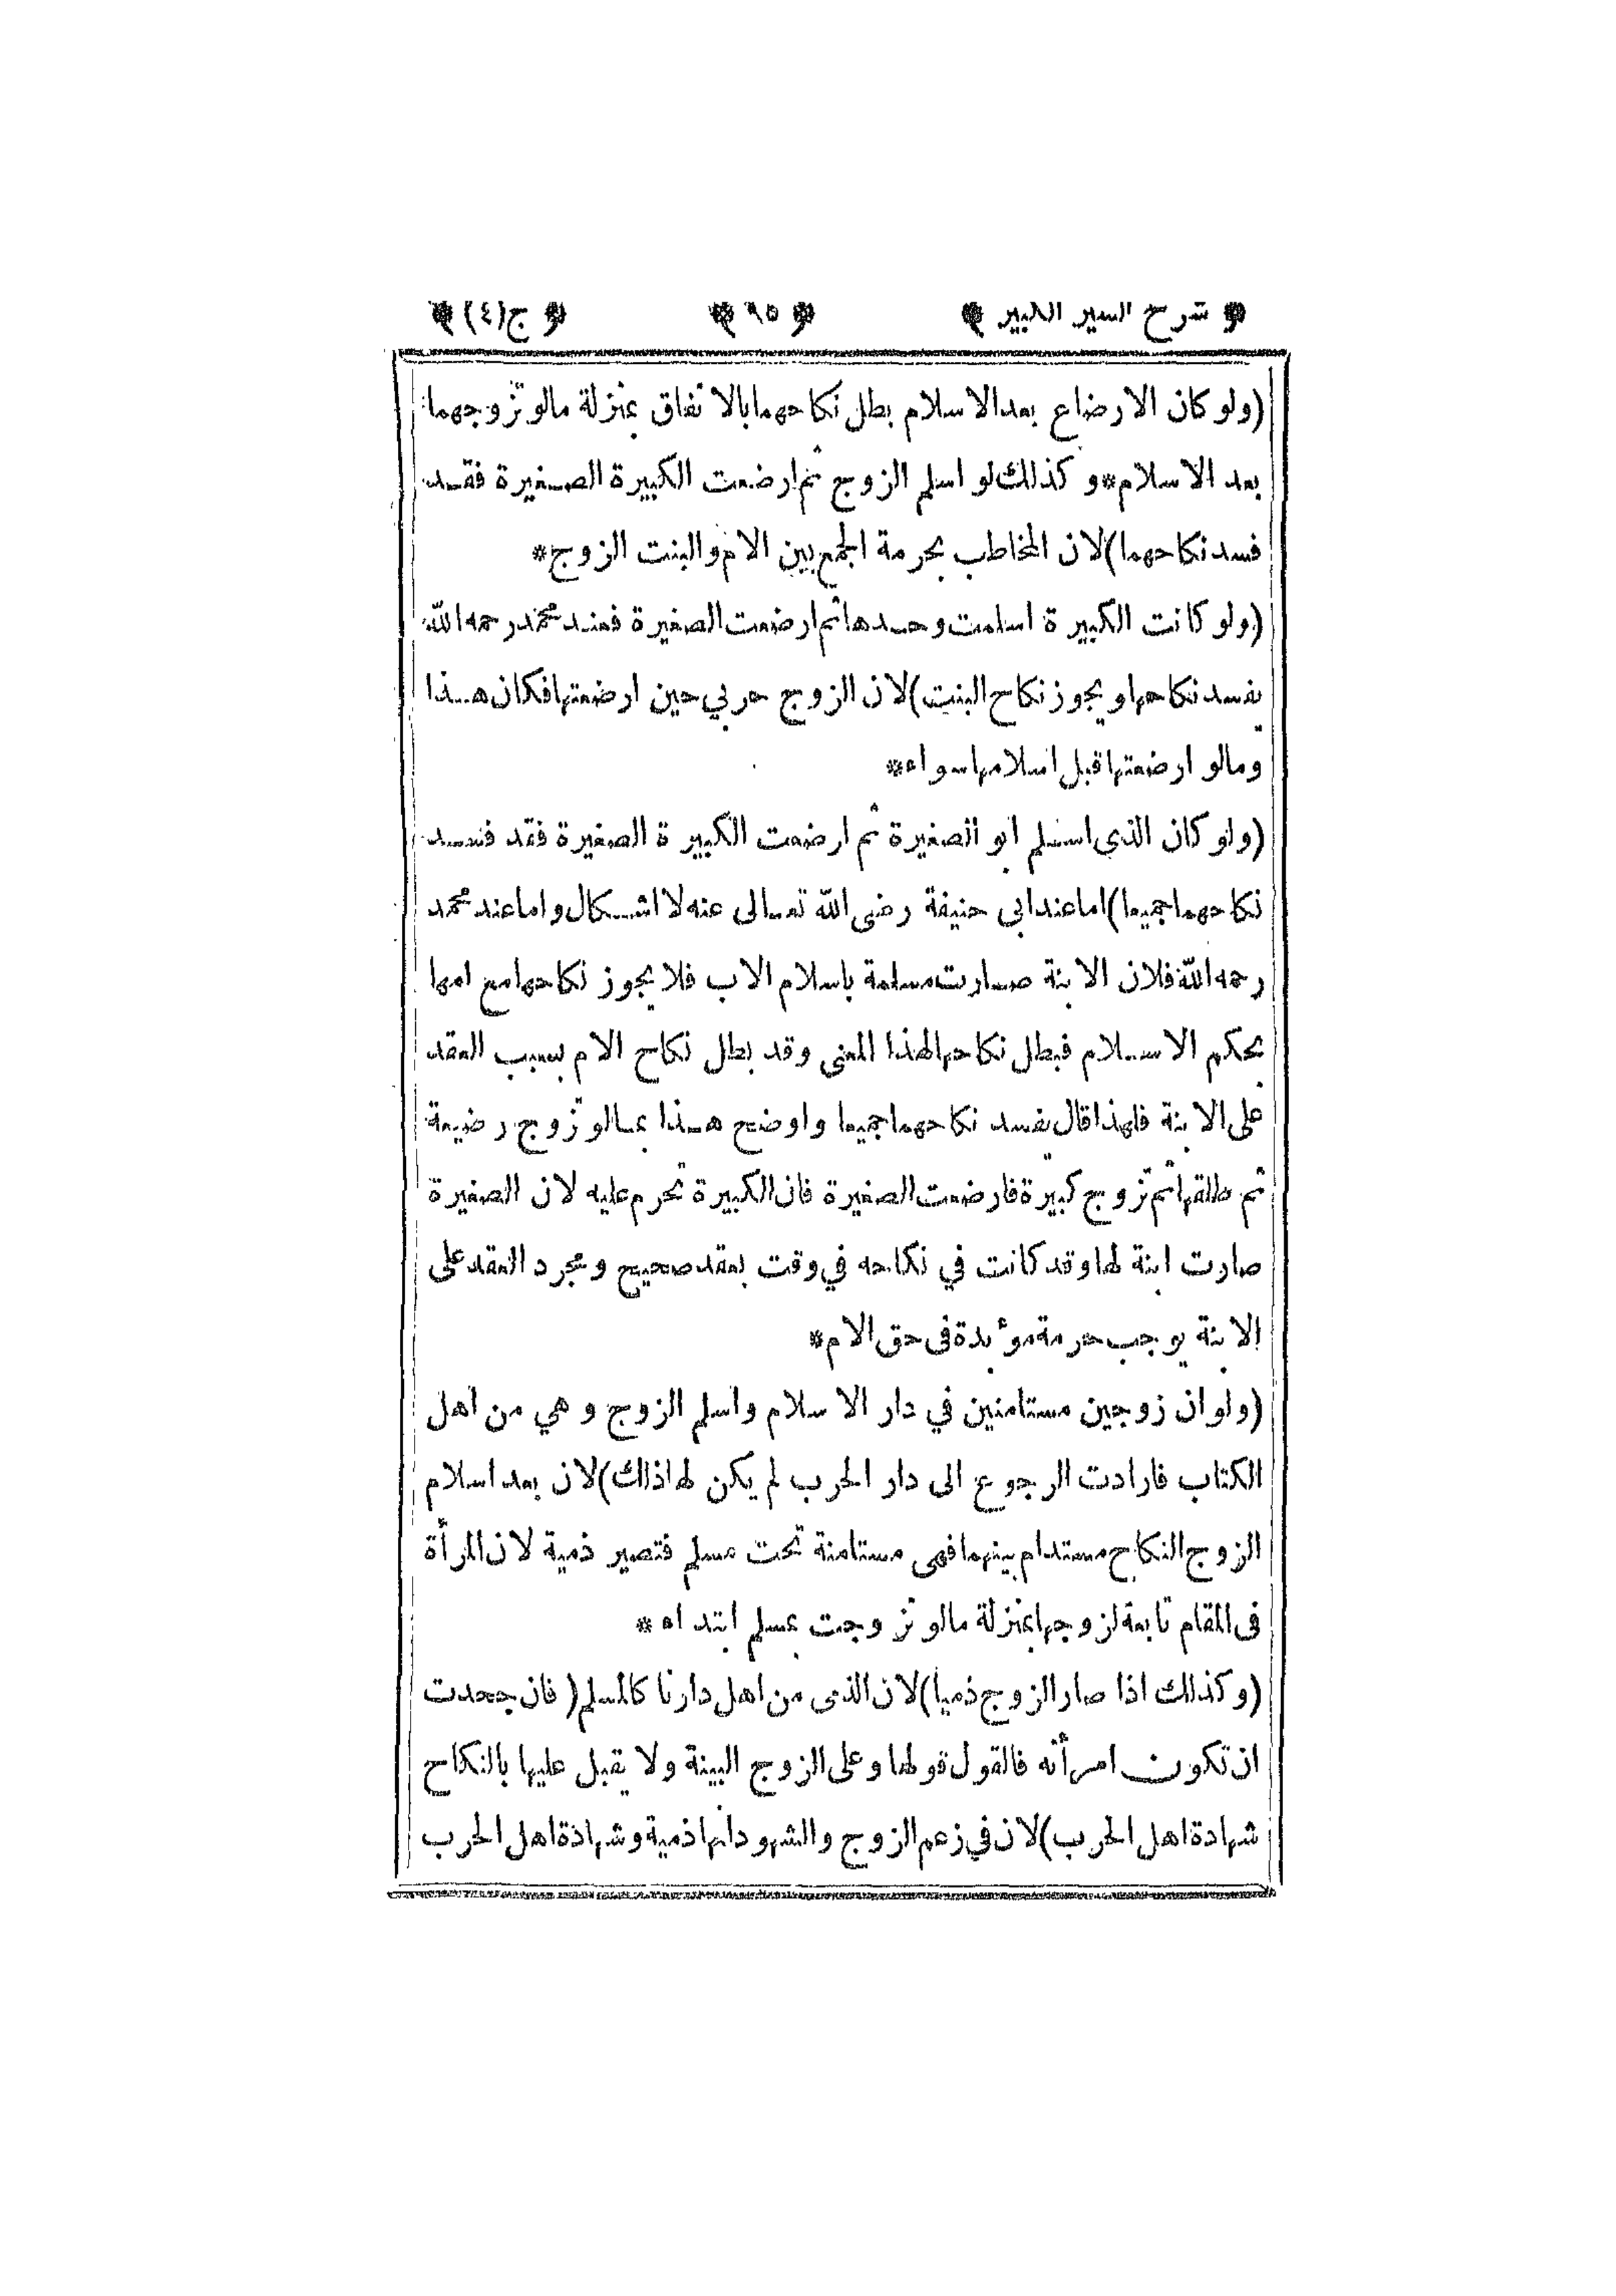 ﴿ شرح السير الكبير ﴾ ﴿ ٩٥ ﴾ ﴿ ج(٤) ﴾
(ولو كان الارضاع بعد الاسلام بطل نكاحهما بالاتفاق بمنزلة مالو تزوجهما
بعد الاسلام*و كذلك لو اسلم الزوج ثم ارضعت الكبيرة الصغيرة فقد
فسد نكاحهما)لان المخاطب بحرمة الجمع بين الام والبنت الزوج*
(ولو كانت الكبيرة اسلمت وحدها ثم ارضعت الصغيرة فعند محمد رحمه الله
يفسد نكاحها و يجوز نكاح البنت)لان الزوج حربي حين ارضعتها فكان هذا
ومالو ارضعتها قبل اسلامها سواء*
(ولو كان الذي اسلم ابو الصغيرة ثم ارضعت الكبيرة الصغيرة فقد فسد
نكاحهما جميعا)اما عند ابى حنيفة رضى الله تعالى عنه لا اشكال واما عند محمد
رحمه الله فلان الابنة صارت مسلمة باسلام الاب فلا يجوز نكاحها مع امها
بحكم الاسلام فبطل نكاحها لهذا المعنى وقد بطل نكاح الام بسبب العقد
على الابنة فلهذا قال يفسد نكاحهما جميعا واوضح هذا بمالو تزوج رضيعة
ثم طلقها ثم تزوج كبيرة فارضعت الصغيرة فان الكبيرة تحرم عليه لان الصغيرة
صارت ابنة لها وقد كانت في نكاحه في وقت بعقد صحيح ومجرد العقد على
الابنة يوجب حرمة مؤبدة فى حق الام*
(ولو ان زوجين مستامنين في دار الاسلام واسلم الزوج وهي من اهل
الكتاب فارادت الرجوع الى دار الحرب لم يكن لها ذلك)لان بعد اسلام
الزوج النكاح مستدام بينهما فهى مستامنة تحت مسلم فتصير ذمية لان المرأة
فى المقام تابعة لزوجها بمنزلة مالو تزوجت بمسلم ابتداء*
(وكذلك اذا صار الزوج ذميا)لان الذى من اهل دارنا كالمسلم(فان جحدت
ان تكون امرأته فالقول قولها وعلى الزوج البينة ولا يقبل عليها بالنكاح
شهادة اهل الحرب)لان في زعم الزوج والشهود انها ذمية وشهادة اهل الحرب